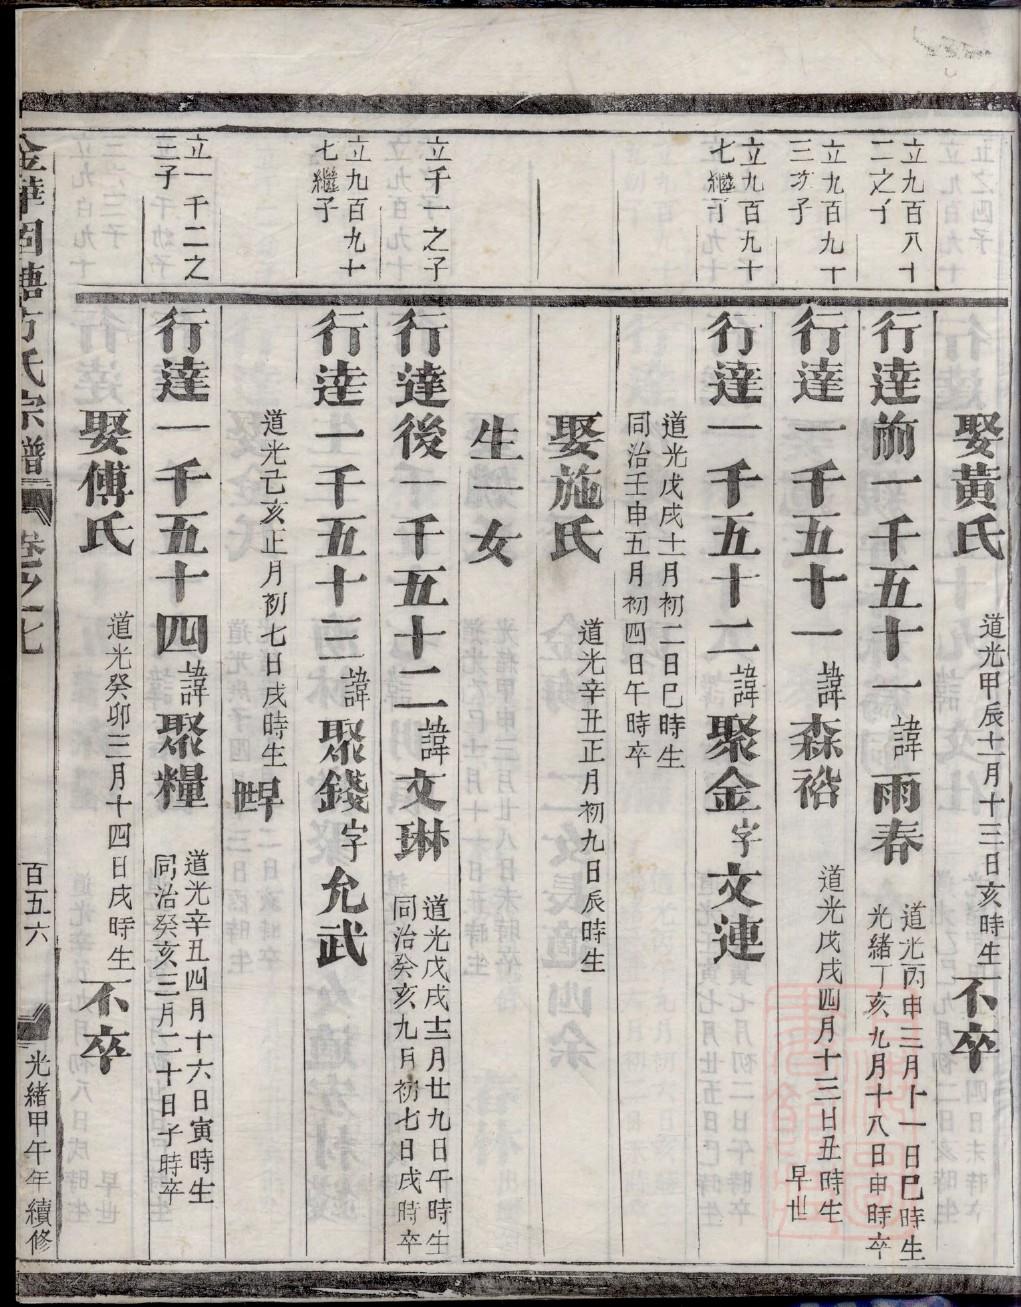 娶黃氏
道光甲辰十月十三日亥時生
不卒
立九百八十
二之子
行達前一千五十一
諱
雨春
道光丙申三月十一日巳時生
光緒丁亥九月十八日申時卒
立九百九十
三次子
行達一千五十一
諱
森裕
道光戊戌四月十三日丑時生
早世
立九百九十
七繼子
行達一千五十二
諱
聚金
字
文連
道光戊戌十月初二日巳時生
同治壬申五月初四日午時卒
娶施氏
道光辛丑正月初九日辰時生
生一女
立千一之子
行達後一千五十二
諱
文琳
道光戊戌十二月廿九日午時生
同治癸亥九月初七日戌時卒
立九百九十
七繼子
行達一千五十三
諱
聚錢
字
允武
道光己亥正月初七日戌時生
立一千二之
三子
行達一千五十四
諱
聚糧
道光辛丑四月十六日寅時生
同治癸亥三月二十日子時卒
娶傅氏
道光癸卯三月十四日戌時生
不卒
方氏宗譜
卷之七
百五六
光緒甲午年續修